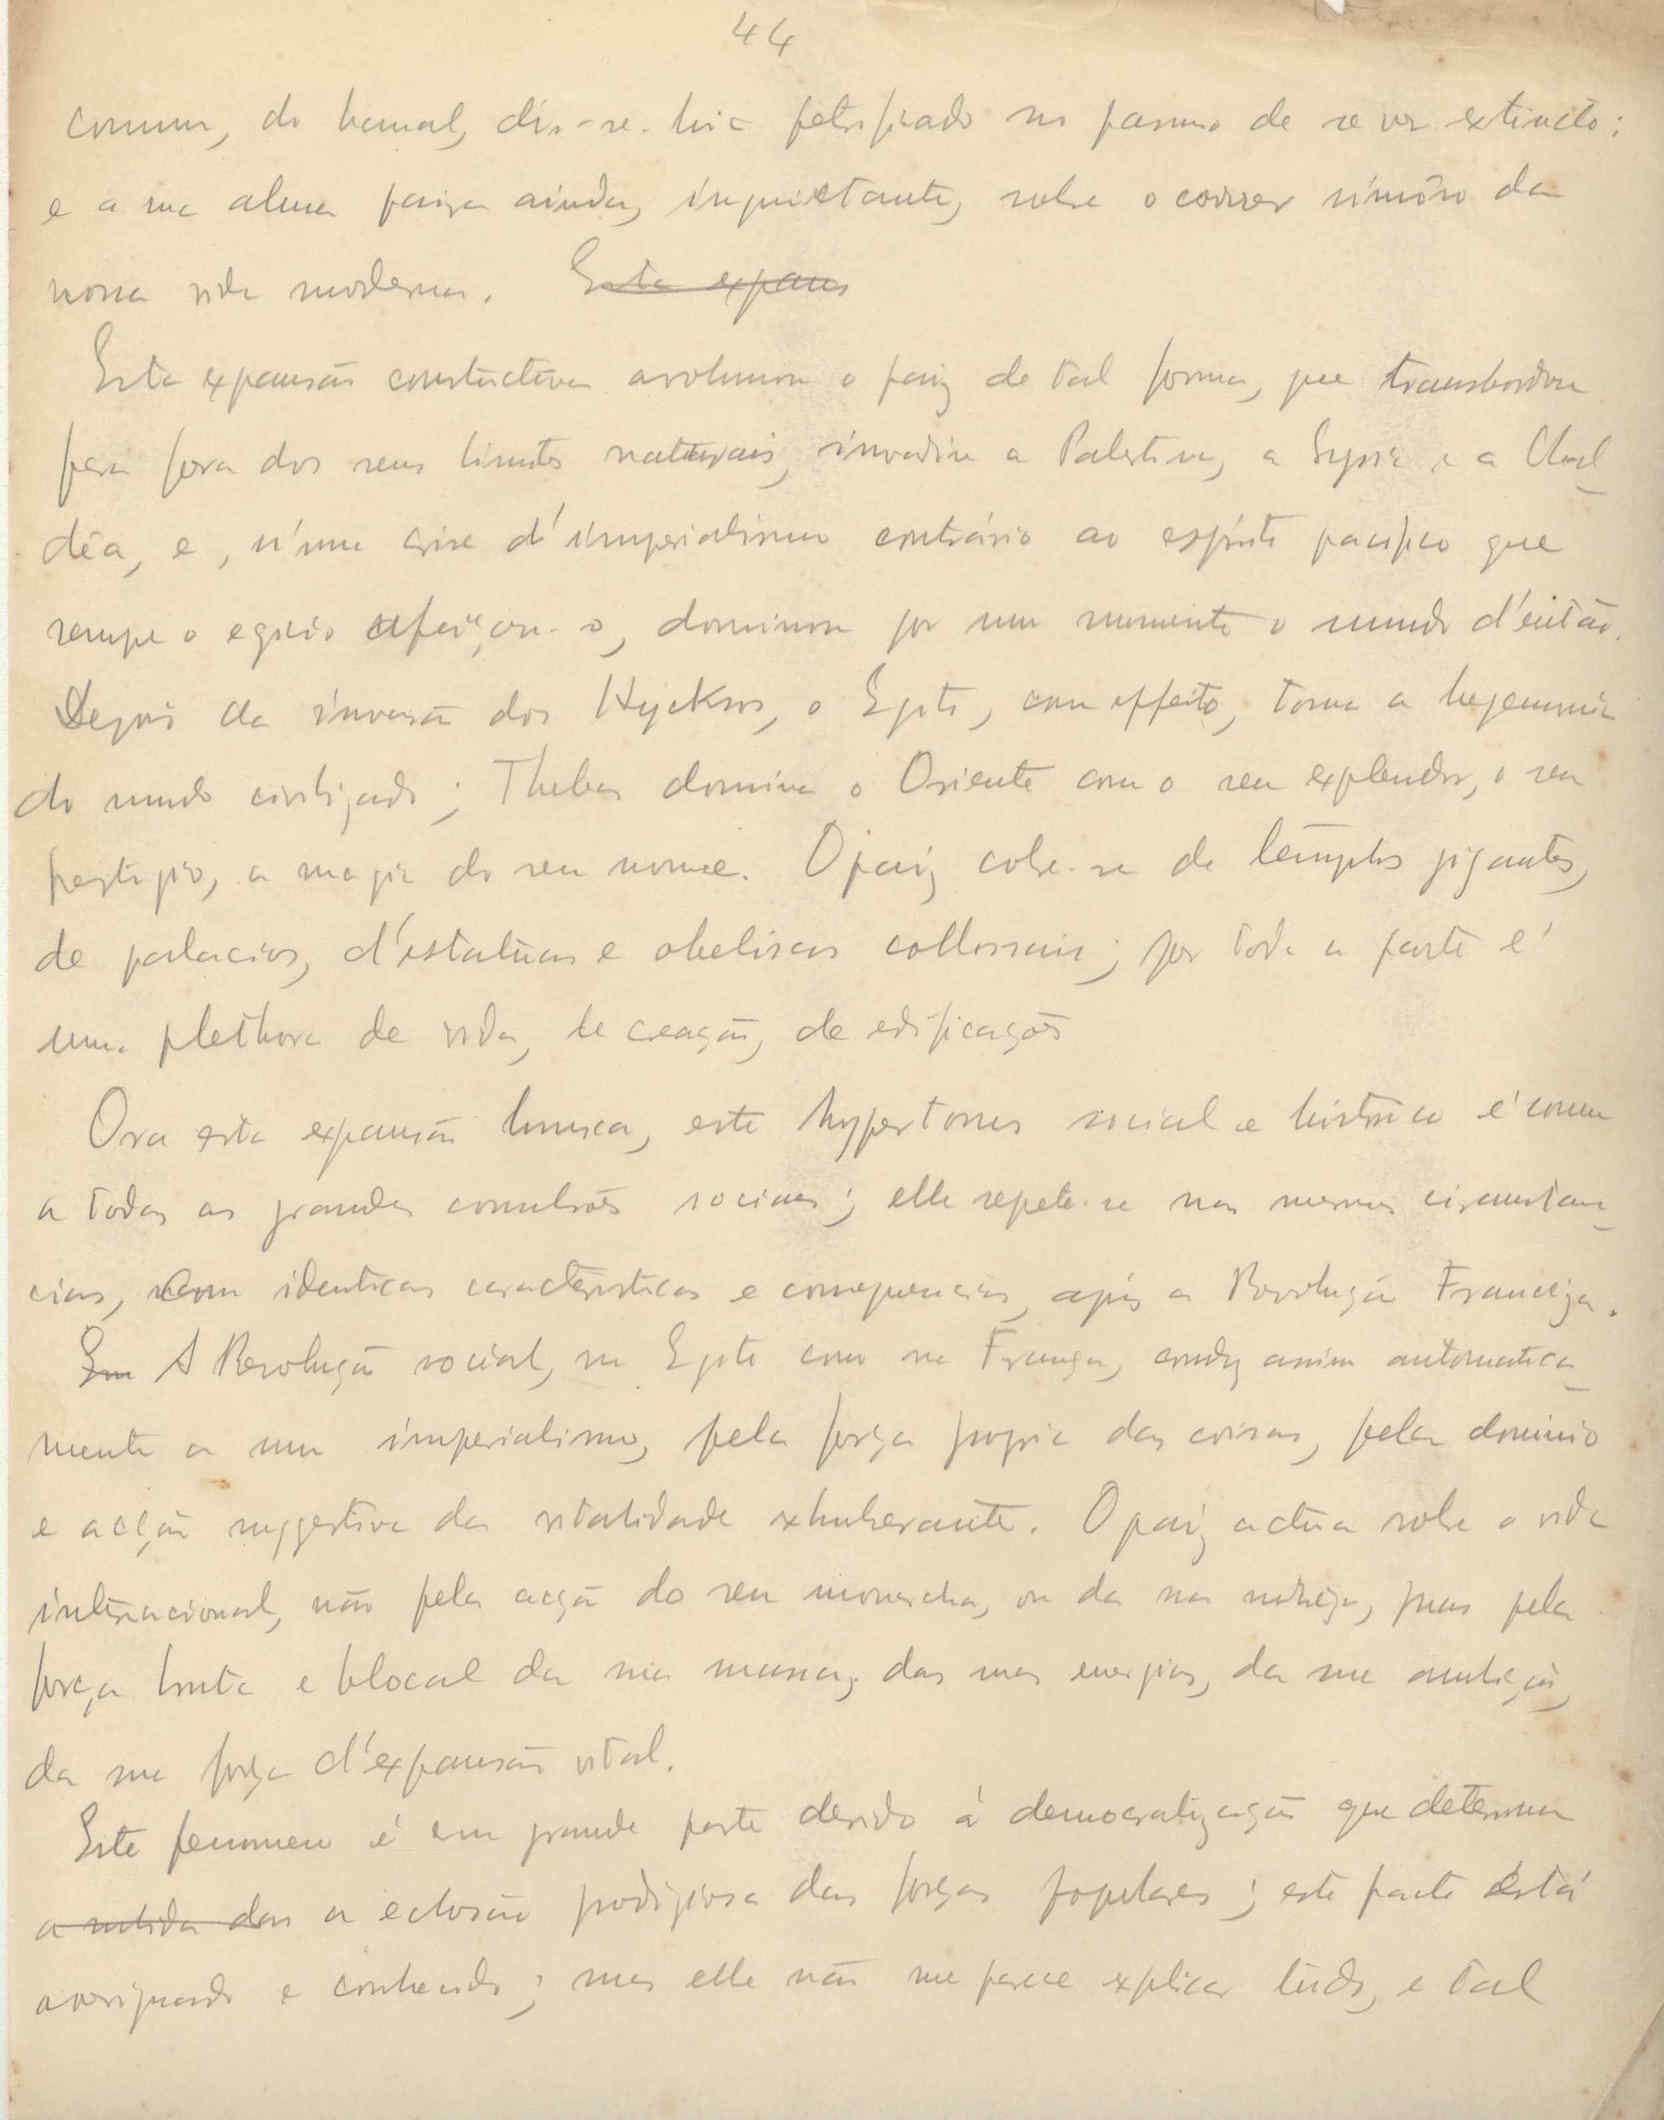 44
commum, do banal, dir-se-hia petrificado no pasmo de se ver extincto;
e a sua alma paira ainda, inquietante, sobre o correr sonóro da
nossa vida moderna. Esta expans
Esta expansão constructiva avolumou o paiz de tal forma, que transbordou
para fora dos seus limites naturais, invadiu a Palestina, a Syria e a Chal_
déa, e, n'uma crise d'imperialismo contrário ao espirito pacifico que
sempre o egicio afeiçou-o, dominou por um momento o mundo d'então.
Depois da invasão dos Hycksos, o Egito, com effeito, toma a hegemonia
do mundo civilizado; Thebas domina o Oriente com o seu explendor, o seu
prestigio, a magia do seu nome. O paiz cobre-se de templos gigantes,
de palacios, d'estatuas e obeliscos collossais; por toda a parte é
uma plethora de vida, de creação, de edificações
Ora esta expansão brusca, este hypertonus social e histórico é comum
a todas as grandes convulsões sociaes; elle repete-se nas mesmas circumstan_
cias, com identicas caracteristicas e consequencias, após a Revolução Franceza.
Em A Revolução social, no Egito como na França, conduz assim automatica_
mente a um imperialismo, pela força propria das coisas, pelo dominio
e acção suggestiva da vitalidade exhuberante. O paiz actúa sobre a vida
internacional, não pela acção do seu monarcha, ou da sua nobreza, mas pela
força bruta e blocal da sua massa, das suas energias, da sua ambição,
da sua força d'expansão vital.
Este fenomeno é em grande parte devido á democratização que determina
a subida das a eclosão prodigiosa das forças populares; este facto está
averiguado e conhecido; mas elle não me parece explicar tudo, e tal